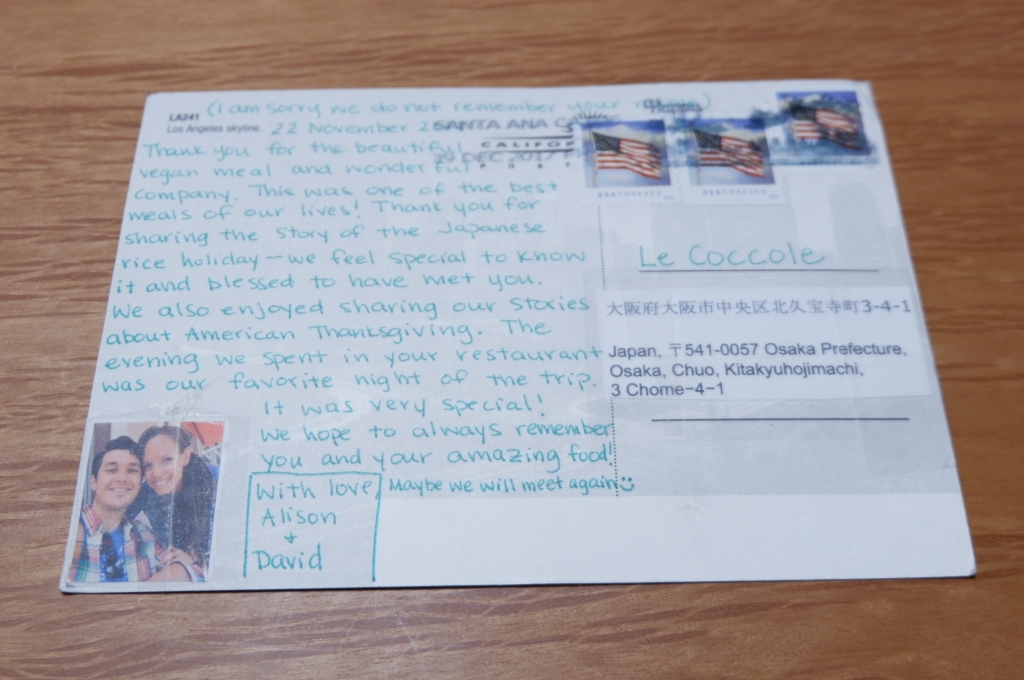 (I am sorry we do not remember your
LA241
Los Angeles skyline.
22 November
SANTA ANA
CALIFOR
29 DEC 2017 P
Thank you for the beautiful
vegan meal and wonderful
company. This was one of the best
meals of our lives! Thank you for
sharing the story of the Japanese
rice holiday — we feel special to know
it and blessed to have met you.
We also enjoyed sharing our stories
about American Thanksgiving. The
evening we spent in your restaurant
was our favorite night of the trip.
It was very special!
We hope to always remember
you and your amazing food!
Maybe we will meet again
With love,
Alison
+
David
USA FOREVER
USA FOREVER
Le Coccole
大阪府大阪市中央区北久宝寺町3-4-1
Japan, 〒541-0057 Osaka Prefecture,
Osaka, Chuo, Kitakyuhojimachi,
3 Chome−4−1